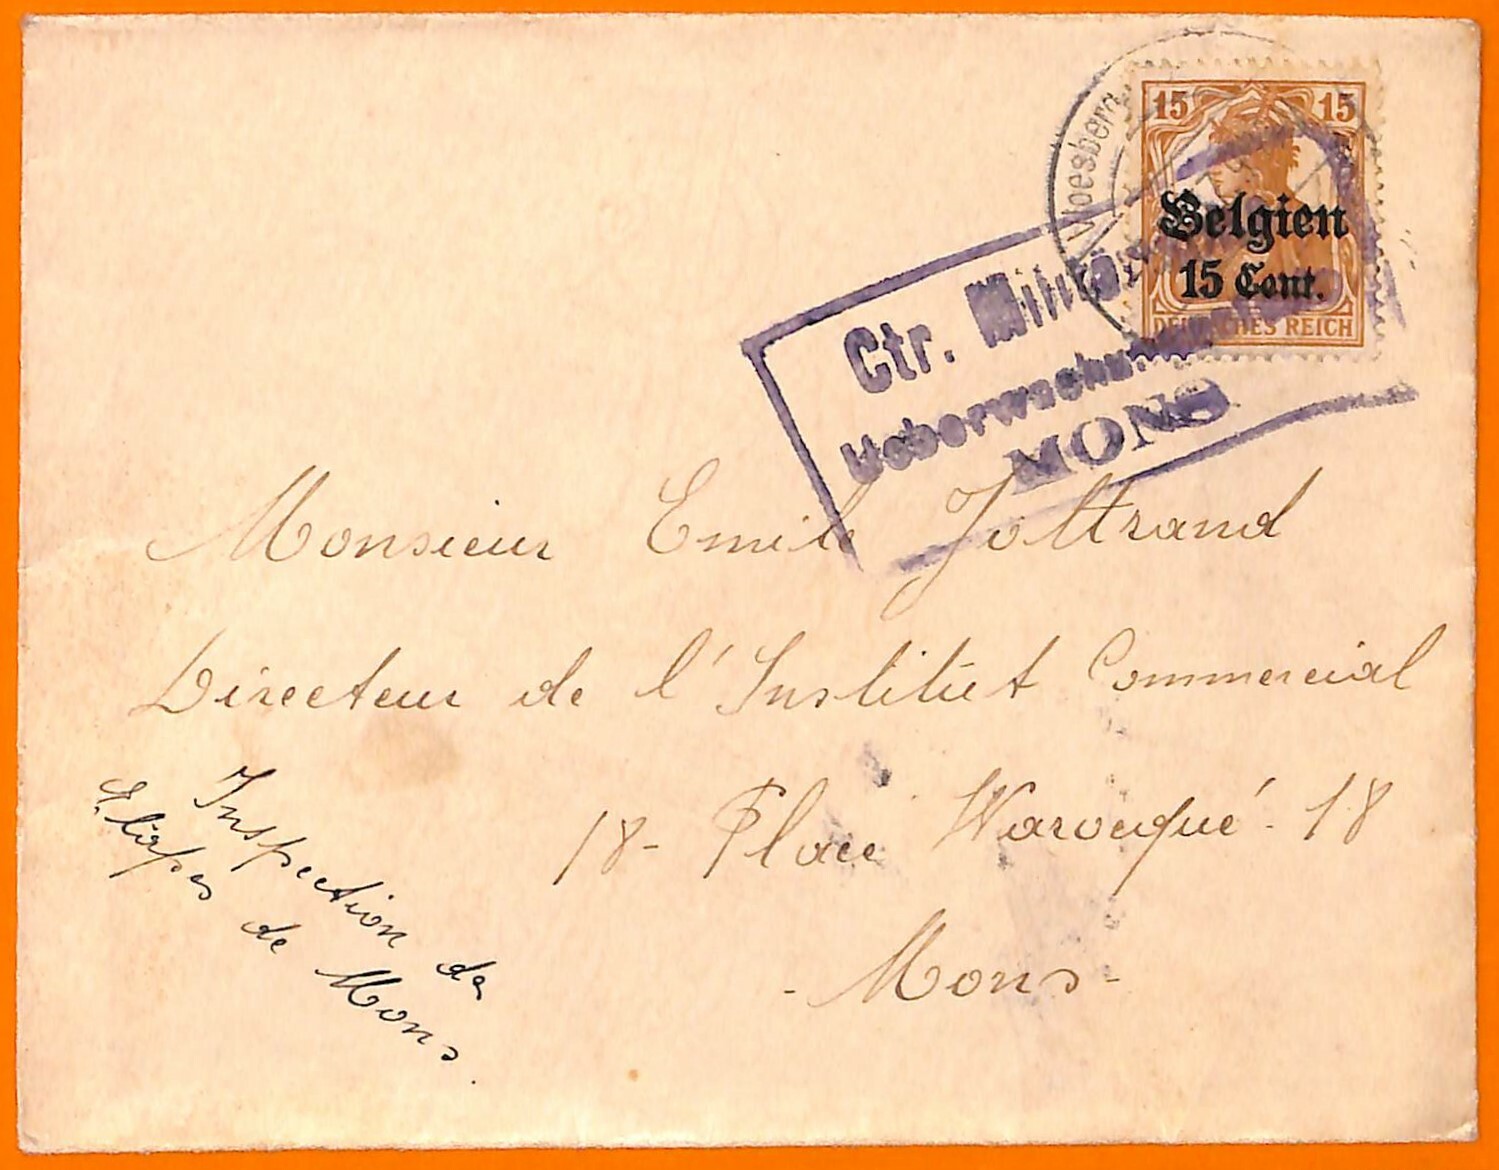 15 15
Belgien
15 Cent.
DEUTSCHES REICH
Ctr. Militär
MONS
Monsieur Emile Joltrand
Directeur de l'Institut Commercial
18 - Place Warocqué - 18
- Mons -
Inspection des
Etapes de Mons.